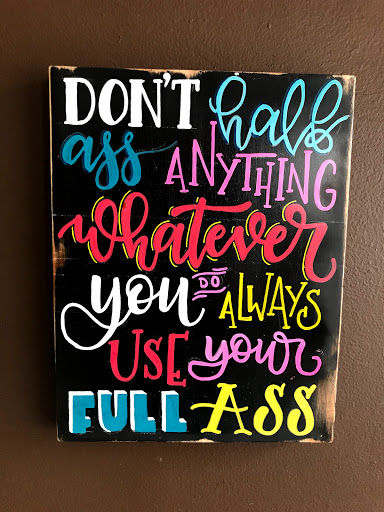 DON'T half
ass ANYTHING
whatever
you DO ALWAYS
USE your
FULL ASS